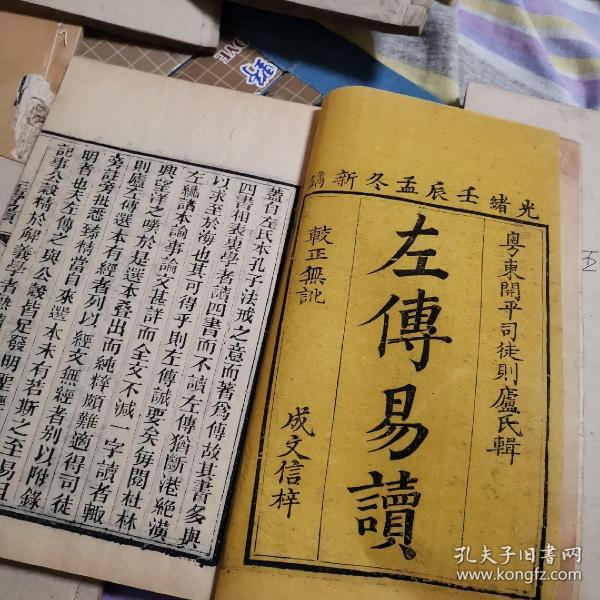 光緒壬辰孟冬新鐫
粵東開平司徒則廬氏輯
左傳易讀
較正無訛
成文信梓
蓋自左氏本孔子法戒之意而著爲傳故其書多與
四書相表裏學者讀四書而不讀左傳猶斷港絕潢
以求至於海也其可得乎則左傳誠要矣每閱杜林
左繡諸本論事論文甚詳而全文不減一字讀者輒
興望洋之嘆於是選本叠出而純粹頗難適得司徒
則廬左傳選本有經者列以經文無經者別以附錄
註旁批悉臻精當自來選本未有若斯之至易且
明者也夫左傳之與公穀皆足發明聖經
記事公穀精於解義學者
孔夫子旧书网
www.kongfz.com